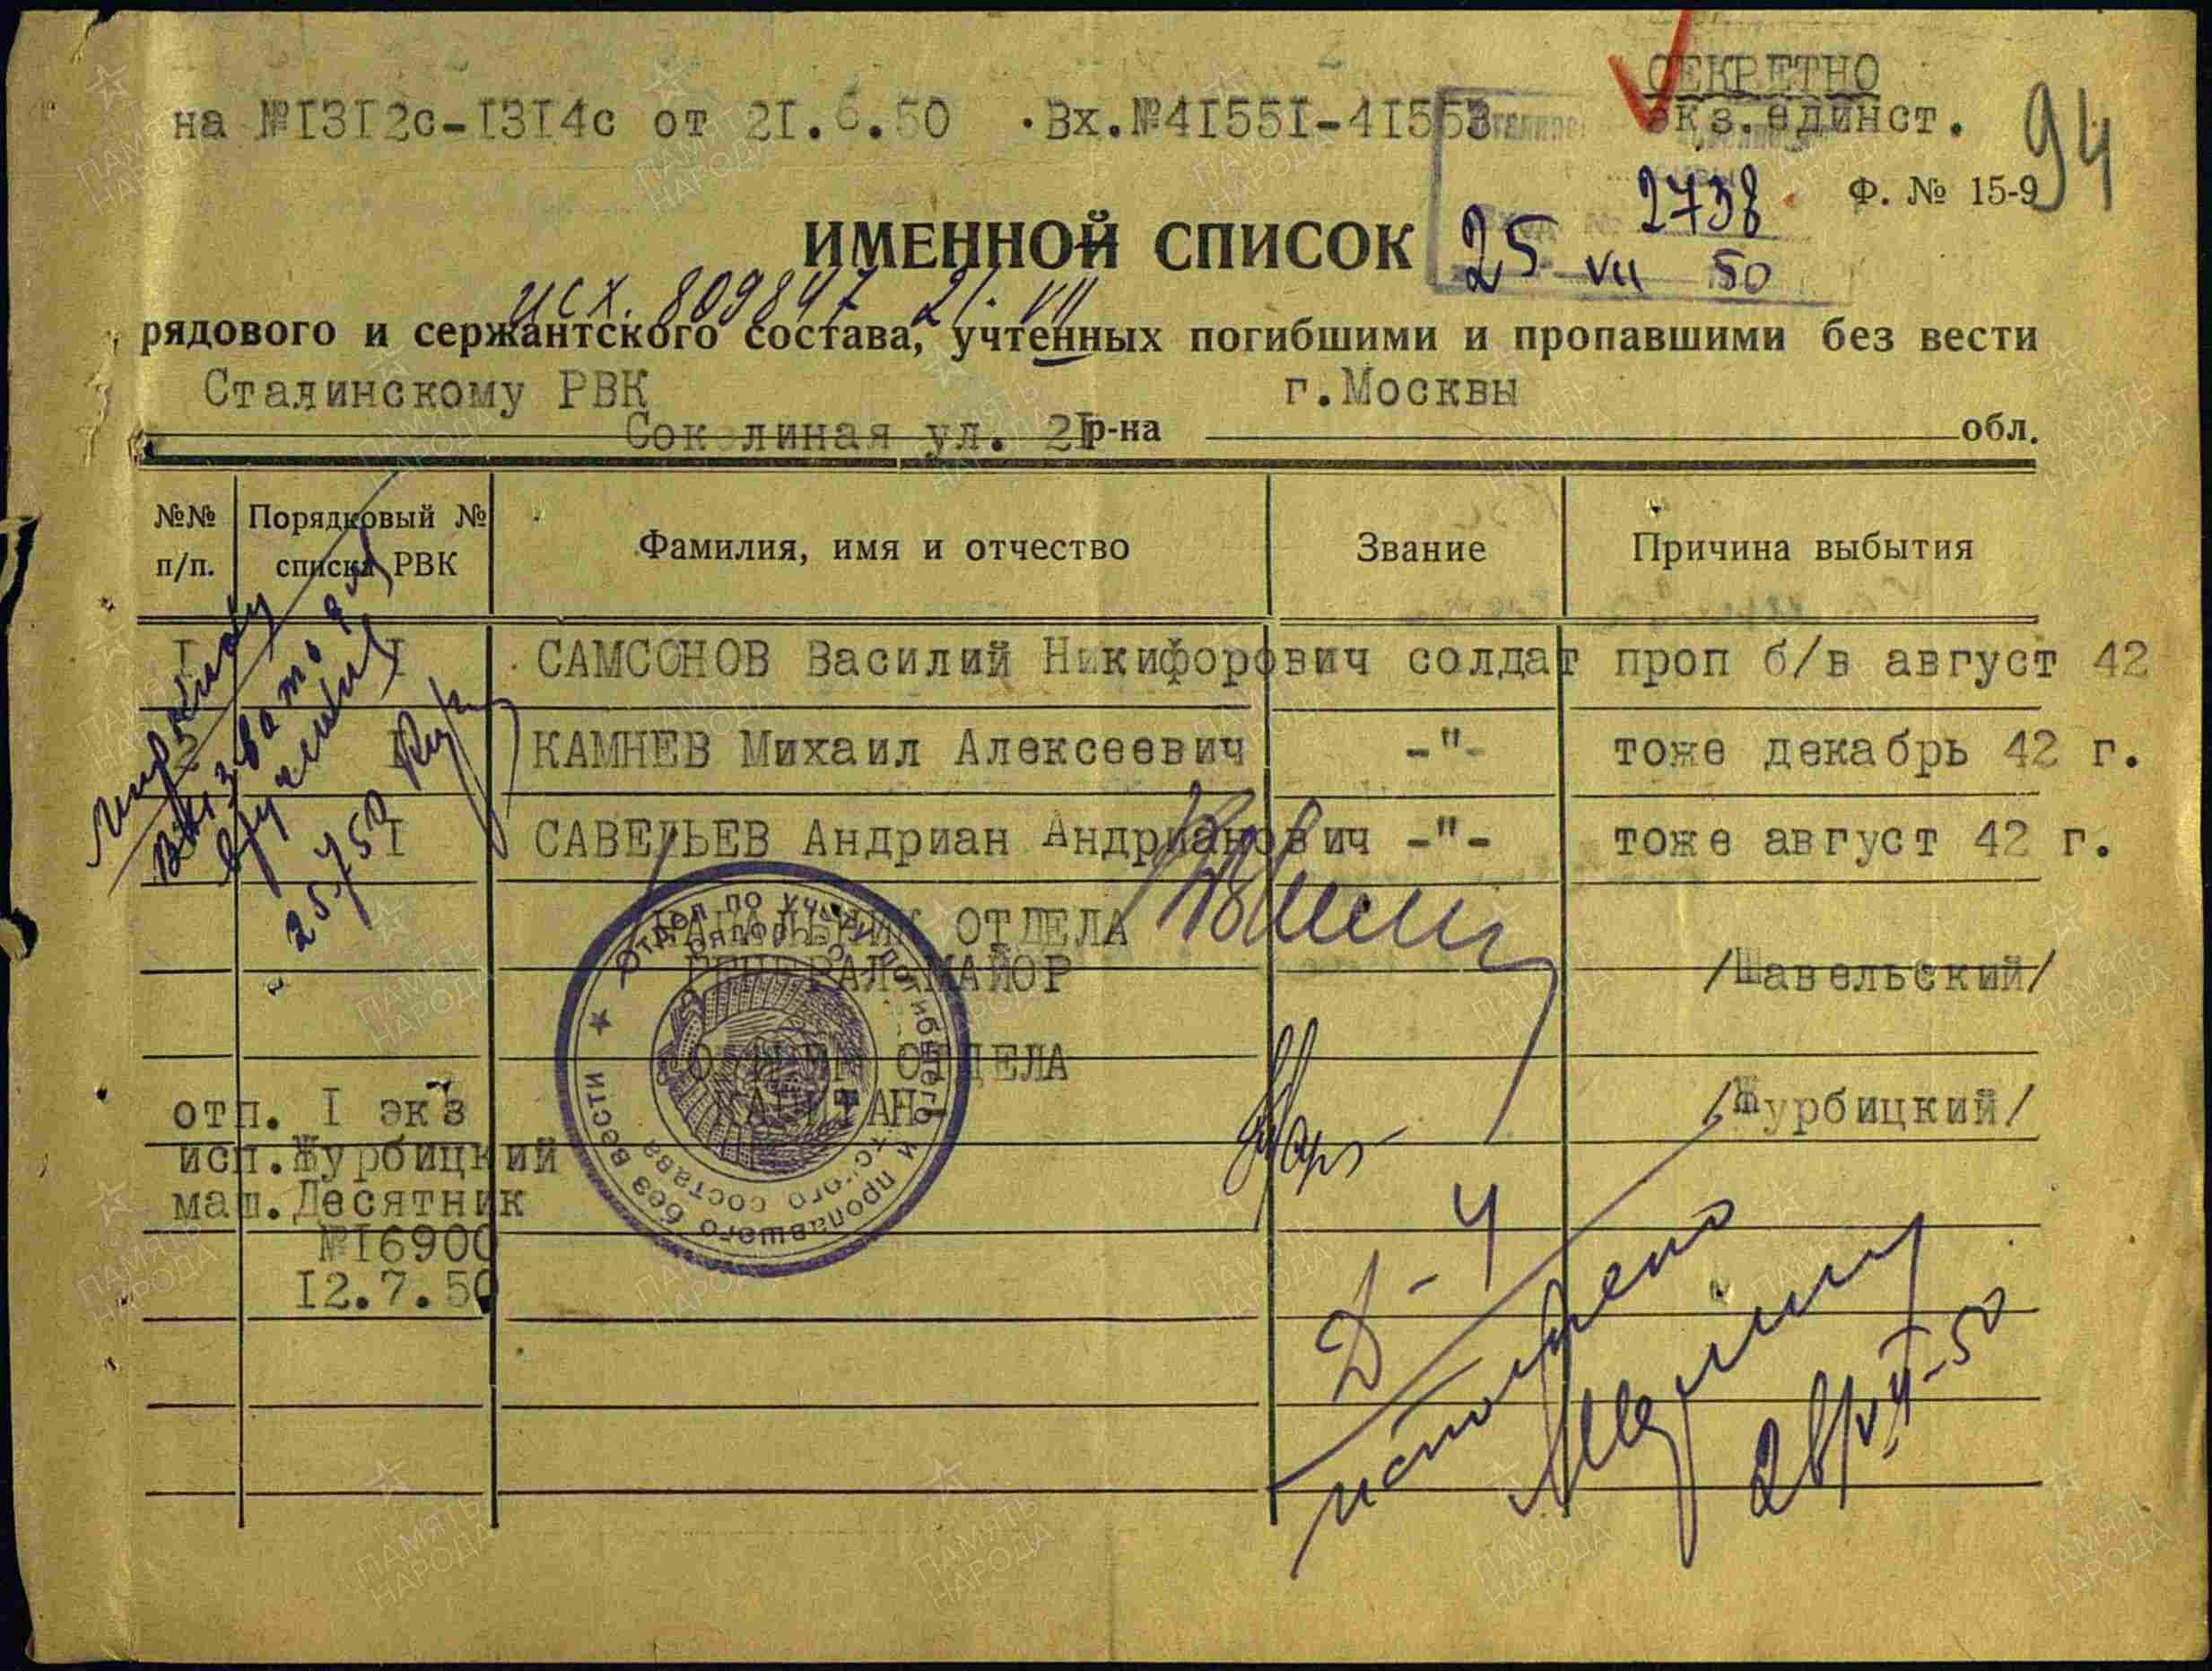 СЕКРЕТНО
на №1312с-1314с от 21.6.50 Вх.№41551-41553 экз.единст.
94
2738 Ф. № 15-9
ИМЕННОЙ СПИСОК
25 VII 50
исх. 809847 21. VII
рядового и сержантского состава, учтенных погибшими и пропавшими без вести
Сталинскому РВК г.Москвы
Соколиная ул. 21 р-на обл.
№№ п/п. Порядковый № списка РВК Фамилия, имя и отчество Звание Причина выбытия
I I САМСОНОВ Василий Никифорович солдат проп б/в август 42
2 I КАМНЕВ Михаил Алексеевич -"- тоже декабрь 42 г.
I САВЕЛЬЕВ Андриан Андрианович -"- тоже август 42 г.
Вызвать для
вручения
25/7 50
НАЧАЛЬНИК ОТДЕЛА
ГЕНЕРАЛ-МАЙОР /Шавельский/
ОФИЦЕР ОТДЕЛА
КАПИТАН- /Журбицкий/
Отдел по учету погибшего и пропавшего без вести
рядового и сержантского состава
отп. I экз
исп.Журбицкий
маш.Десятник
№16900
12.7.50
Д-4
ПАМЯТЬ НАРОДА